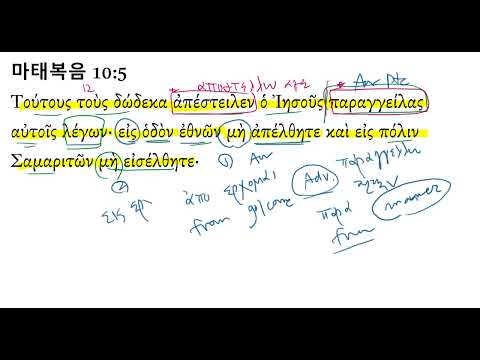 마태복음 10:5
12
Aor Ptc
Τούτους τοὺς δώδεκα ἀπέστειλεν ὁ Ἰησοῦς παραγγείλας
αὐτοῖς λέγων· εἰς ὁδὸν ἐθνῶν μὴ ἀπέλθητε καὶ εἰς πόλιν
Σαμαριτῶν μὴ εἰσέλθητε·
① Aor
②
ἀπο ερχομαι Adv. παραγγελλω
from go/come παρα manner
from